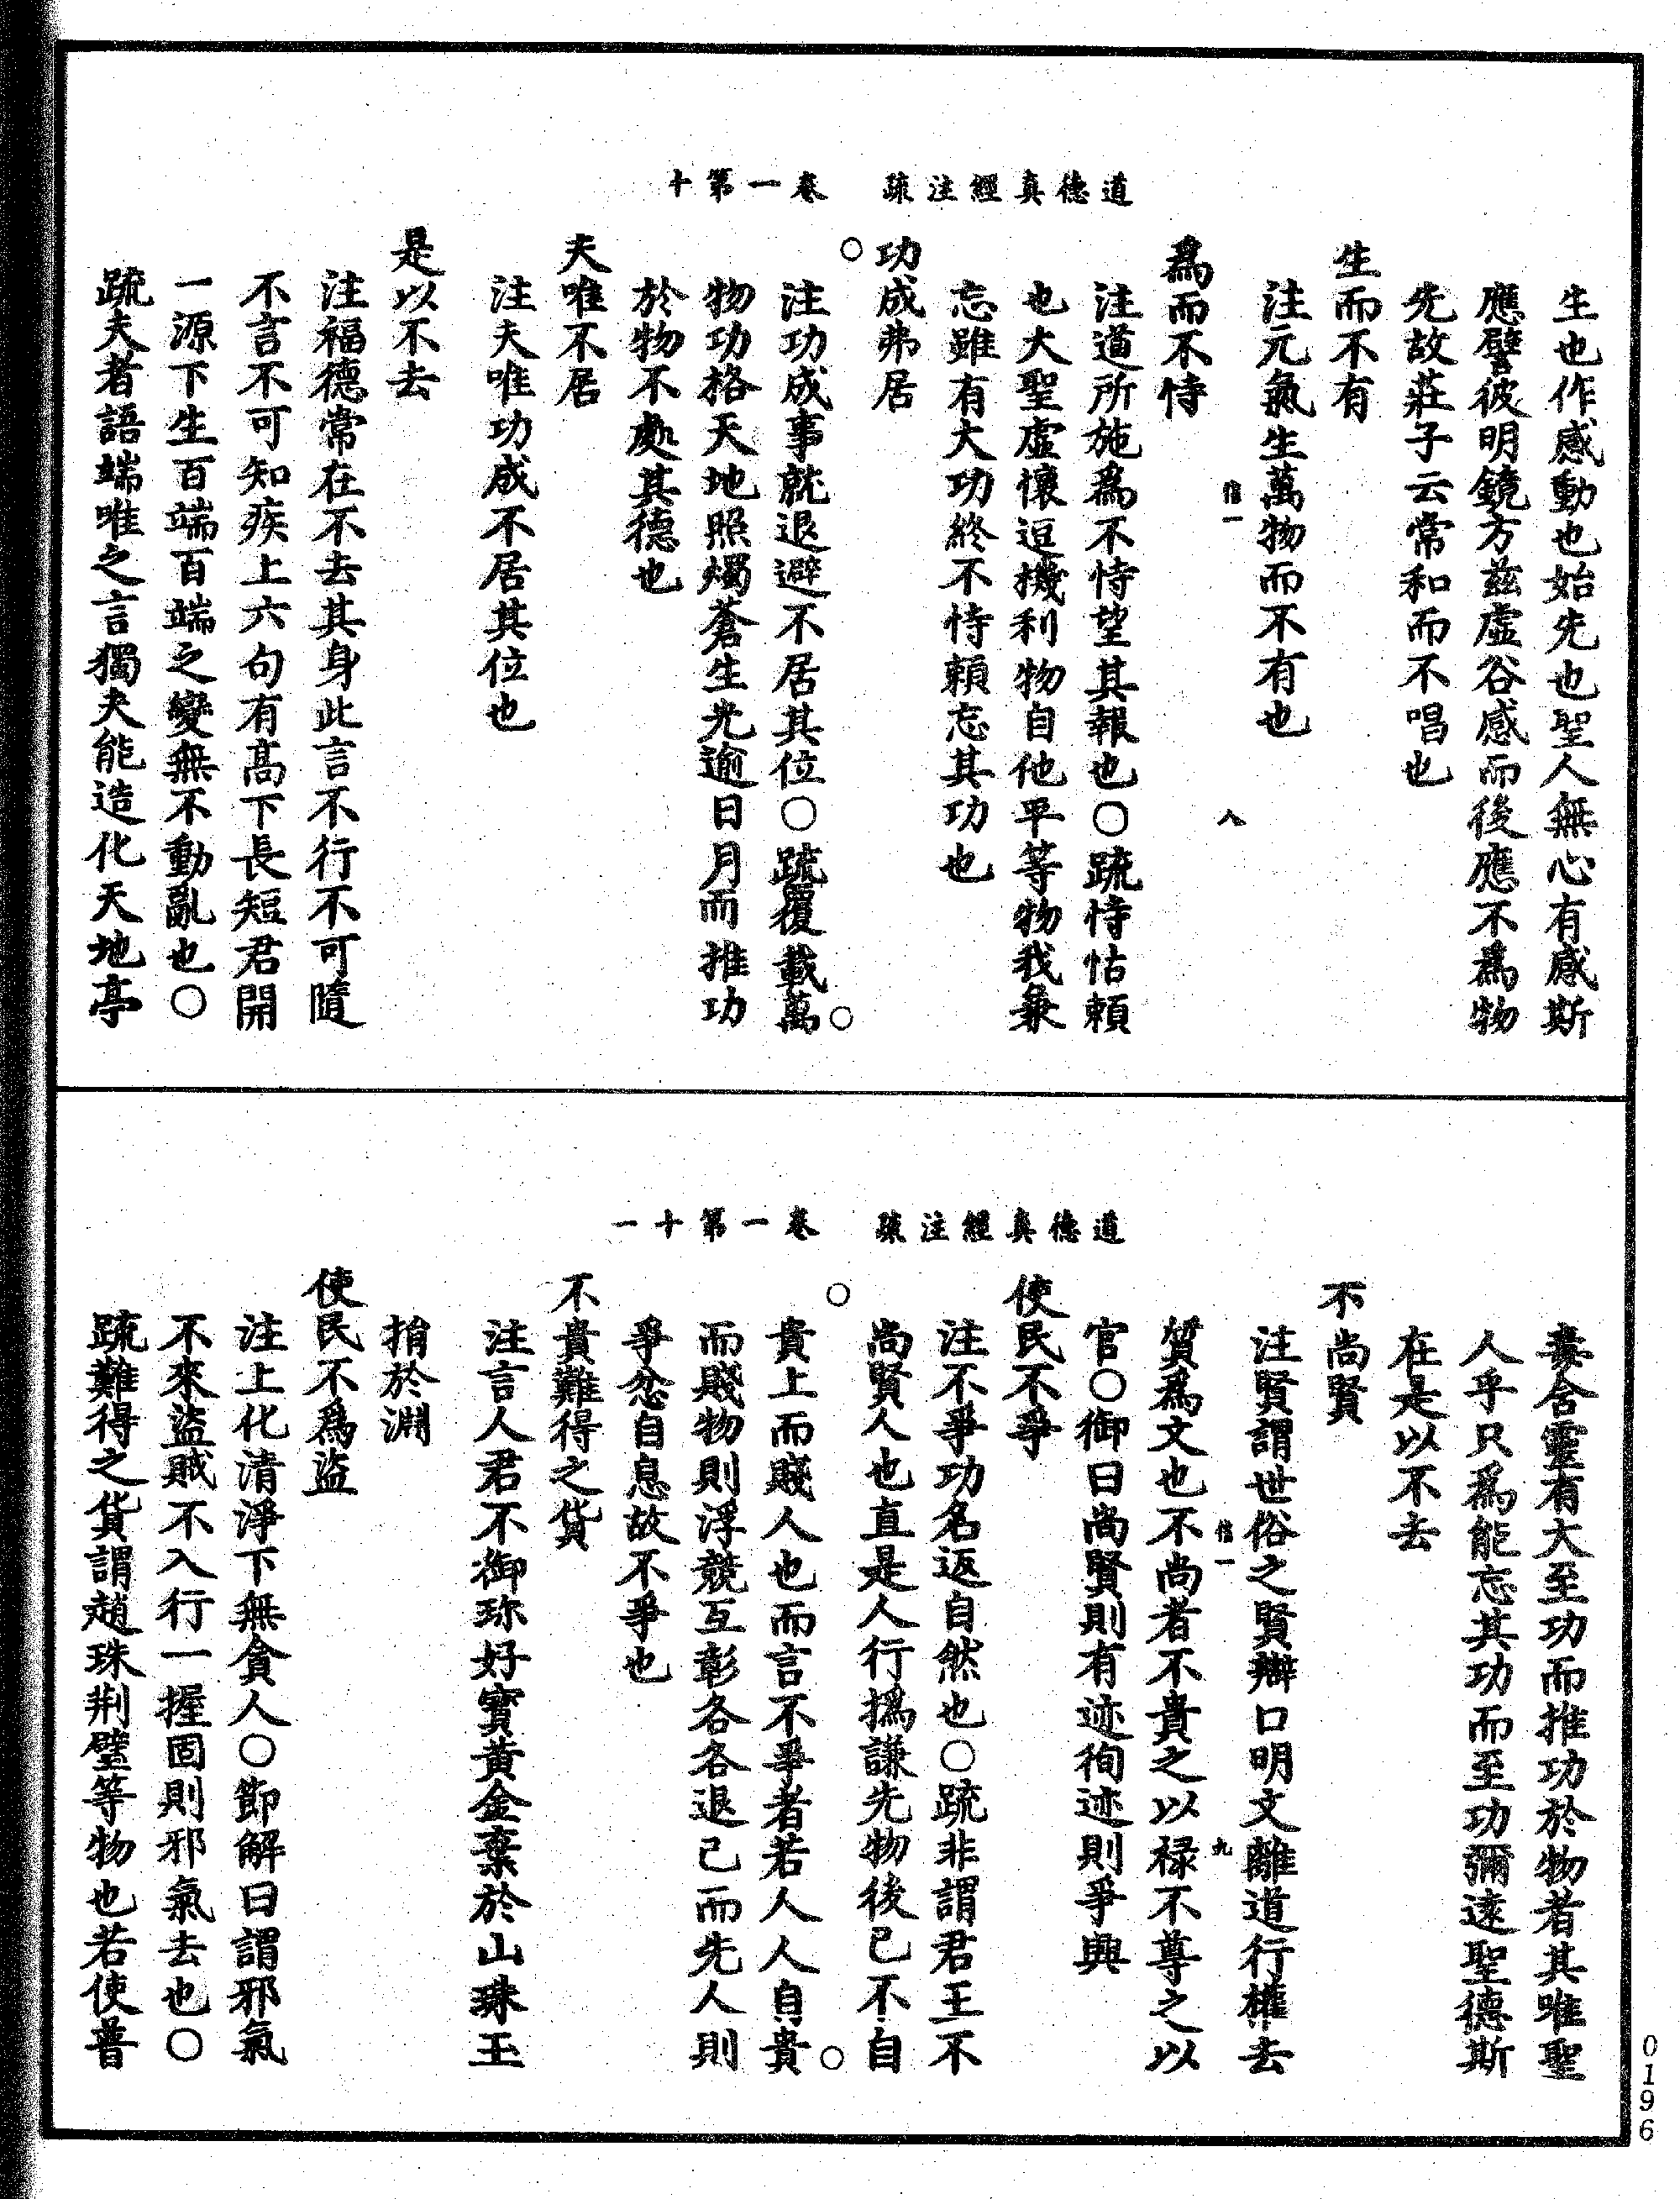 道德真經注疏 卷一第十
生也作感動也始先也聖人無心有感斯
應譬彼明鏡方茲虛谷感而後應不為物
先故莊子云常和而不唱也
生而不有
注元氣生萬物而不有也
信一 八
為而不恃
注道所施為不恃望其報也○疏恃怙賴
也大聖虛懷逗機利物自他平等物我兼
忘雖有大功終不恃賴忘其功也
功成弗居
○ ○
注功成事就退避不居其位○疏覆載萬
物功格天地照燭蒼生光逾日月而推功
於物不處其德也
夫唯不居
注夫唯功成不居其位也
是以不去
注福德常在不去其身此言不行不可隨
不言不可知疾上六句有高下長短君開
一源下生百端百端之變無不動亂也○
疏夫者語端唯之言獨夫能造化天地亭
道德真經注疏 卷一第十一
毒含靈有大至功而推功於物者其唯聖
人乎只為能忘其功而至功彌遠聖德斯
在是以不去
不尚賢
注賢謂世俗之賢辯口明文離道行權去
信一 九
質為文也不尚者不貴之以祿不尊之以
官○御曰尚賢則有迹徇迹則爭興
使民不爭
注不爭功名返自然也○疏非謂君王不
尚賢人也直是人行撝謙先物後己不自
○ ○
貴上而賤人也而言不爭者若人人自貴
而賤物則浮競互彰各各退己而先人則
爭忿自息故不爭也
不貴難得之貨
注言人君不御珍好寶黃金棄於山珠玉
捐於淵
使民不為盜
注上化清淨下無貪人○節解曰謂邪氣
不來盜賊不入行一握固則邪氣去也○
疏難得之貨謂趙珠荆璧等物也若使普
0196